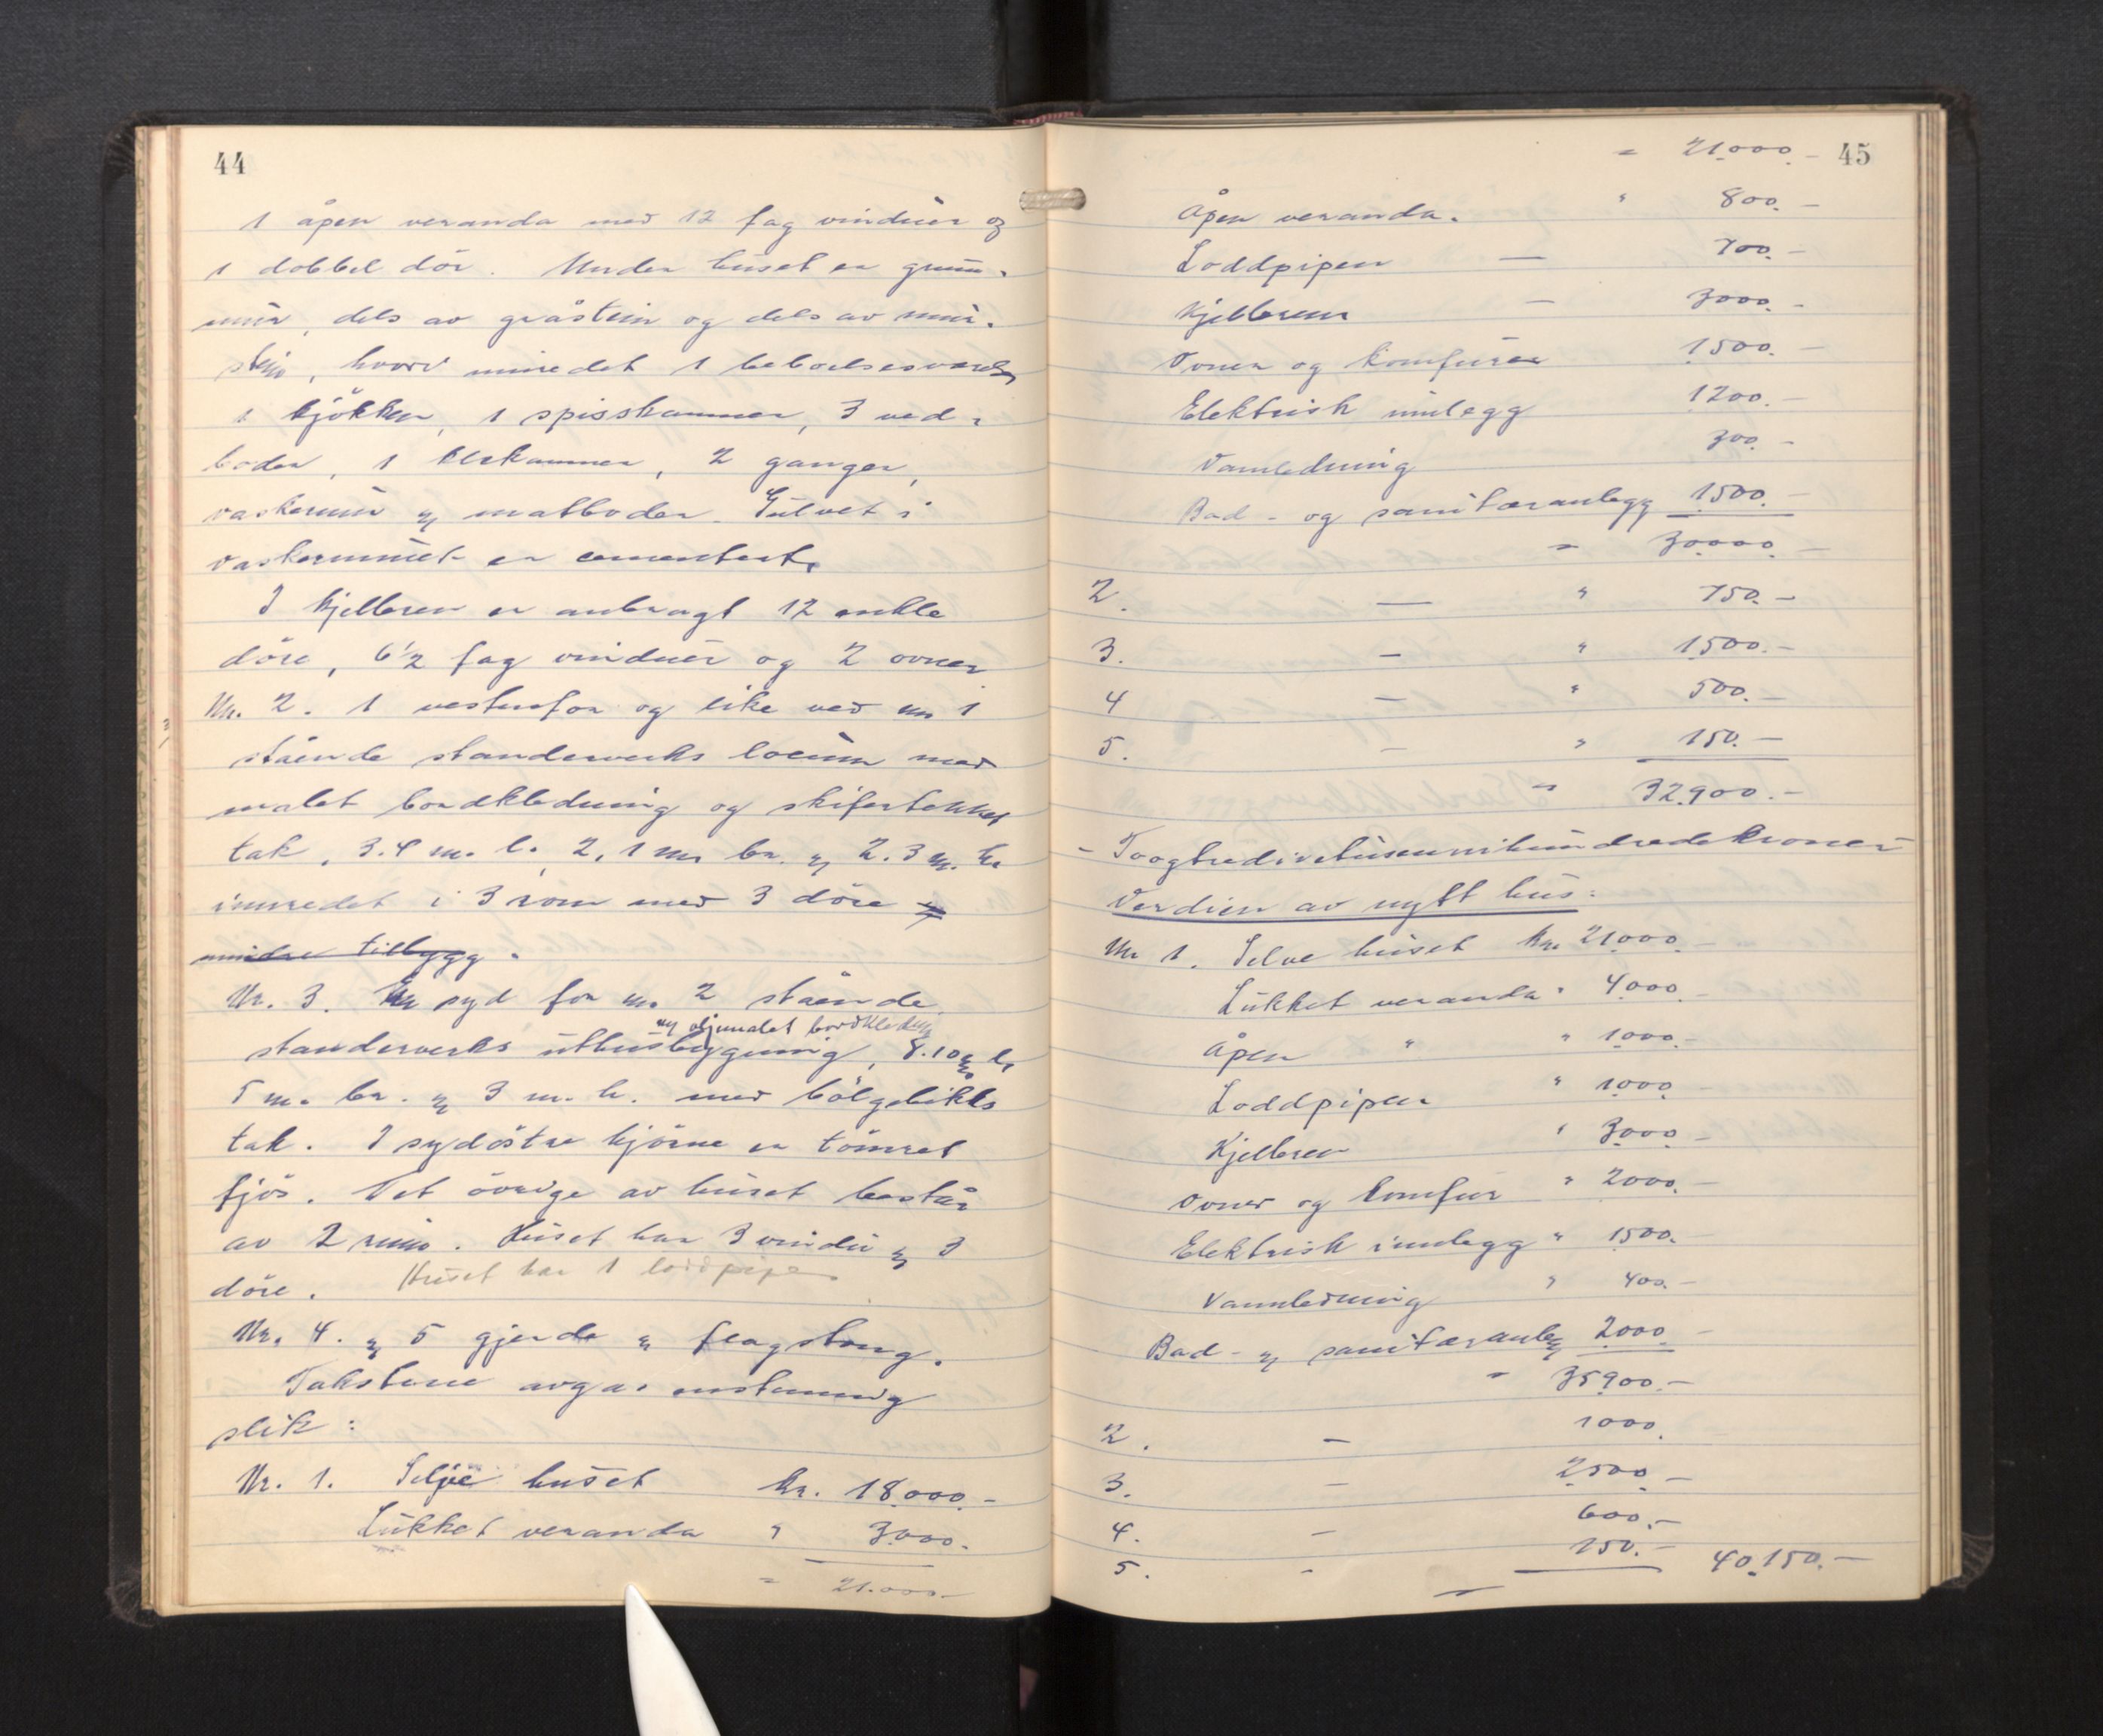 44
1 åpen veranda med 12 fag vinduer og
1 dobbel dör. Under huset er grunn-
mur, dels av gråstein og dels av mur-
stein, hvori innredet 1 beboelsesværelse
1 kjökken, 1 spisskammer, 3 ved-
boder, 1 klekammer, 2 ganger,
vaskerum og matboder. Gulvet i
vaskerummet er cementert.
I kjelleren er anbragt 12 enkle
döre, 6½ fag vinduer og 2 ovner
Nr. 2. 1 vestenfor og like ved nr 1
stående standerverks locum med
malet bordkledning og skifertekket
tak, 3.4 m. l. 2,1 m. br. og 2.3 m. h.
innredet i 3 rom med 3 döre og
mindre tilbygg.
Nr. 3. En syd for nr. 2 stående
og oljemalet bordkledning
standerverks uthusbygning, 8.10 m. l.
5 m. br. og 3 m. h. med bölgebliks
tak. I sydöstre hjörne er tömret
fjös. Det övrige av huset består
av 2 rum. Huset har 3 vindu og 3
döre. Huset har 1 loddpipe
Nr. 4. og 5 gjerde og flagstong.
Takstene avgas enstemmig
slik:
Nr. 1. Selve huset kr. 18.000.-
Lukket veranda " 3.000.-
" 21.000.-
45
" 21.000.-
Åpen veranda. " 800.-
Loddpipen — 700.-
Kjelleren — 3000.-
Ovner og komfurer 1500.-
Elektrisk innlegg 1200.-
Vannledning 300.-
Bad- og sanitæranlegg 1500.-
" 30.000.-
2. — " 750.-
3. — " 1500.-
4 — " 500.-
5. — " 150.-
" 32.900.-
- Toogtredivetusennihundredekroner -
Verdien av nytt hus:
Nr 1. Selve huset kr. 21.000.-
Lukket veranda " 4.000.-
Åpen " " 1.000.-
Loddpipen " 1.000.-
Kjelleren " 3.000.-
Ovner og komfur " 2000.-
Elektrisk innlegg " 1500.-
Vannledning " 400.-
Bad- og sanitæranlegg 2.000.-
" 35.900.-
2. — 1000.
3. — 2500.-
4. — 600.-
5. - 150.- 40.150.-